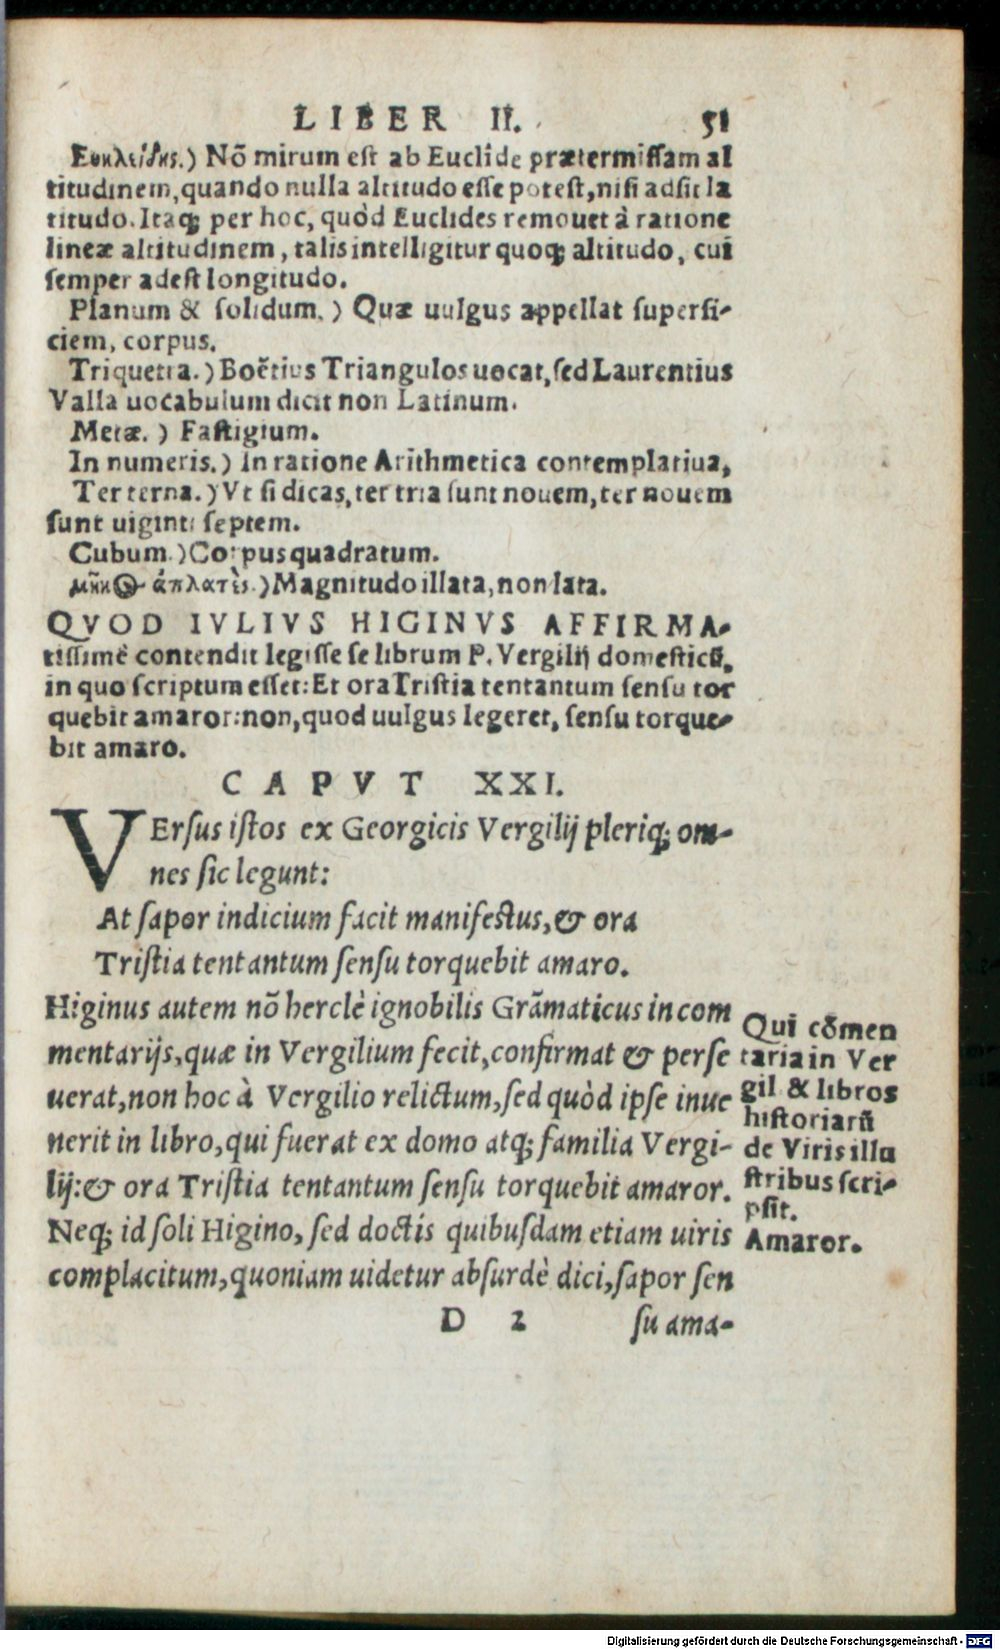 LIBER II. 51
Ευκλείδης.) Nõ mirum est ab Euclide prætermissam al
titudinem, quando nulla altitudo esse potest, nisi adsit la
titudo. Itaq; per hoc, quòd Euclides remouet à ratione
lineæ altitudinem, talis intelligitur quoq; altitudo, cui
semper adest longitudo.
Planum & solidum.) Quæ uulgus appellat superfi-
ciem, corpus.
Triquetra.) Boëtius Triangulos uocat, sed Laurentius
Valla uocabulum dicit non Latinum.
Metæ.) Fastigium.
In numeris.) In ratione Arithmetica contemplatiua,
Ter terna.) Vt si dicas, ter tria sunt nouem, ter nouem
sunt uiginti septem.
Cubum.) Corpus quadratum.
μῆκος ἀπλατὲς.) Magnitudo illata, non lata.
QVOD IVLIVS HIGINVS AFFIRMA-
tissimè contendit legisse se librum P. Vergilij domesticũ,
in quo scriptum esset: Et ora Tristia tentantum sensu tor
quebit amaror: non, quod uulgus legeret, sensu torque-
bit amaro.
CAPVT XXI.
VErsus istos ex Georgicis Vergilij pleriq; om-
nes sic legunt:
At sapor indicium facit manifestus, & ora
Tristia tentantum sensu torquebit amaro.
Higinus autem nõ herclè ignobilis Grãmaticus in com
mentarijs, quæ in Vergilium fecit, confirmat & perse
uerat, non hoc à Vergilio relictum, sed quòd ipse inue
nerit in libro, qui fuerat ex domo atq; familia Vergi-
lij: & ora Tristia tentantum sensu torquebit amaror.
Neq; id soli Higino, sed doctis quibusdam etiam uiris
complacitum, quoniam uidetur absurdè dici, sapor sen
D 2 su ama-
Qui cõmen
taria in Ver
gil. & libros
historiarũ
de Viris illu
stribus scri-
psit.
Amaror.
Digitalisierung gefördert durch die Deutsche Forschungsgemeinschaft - DFG